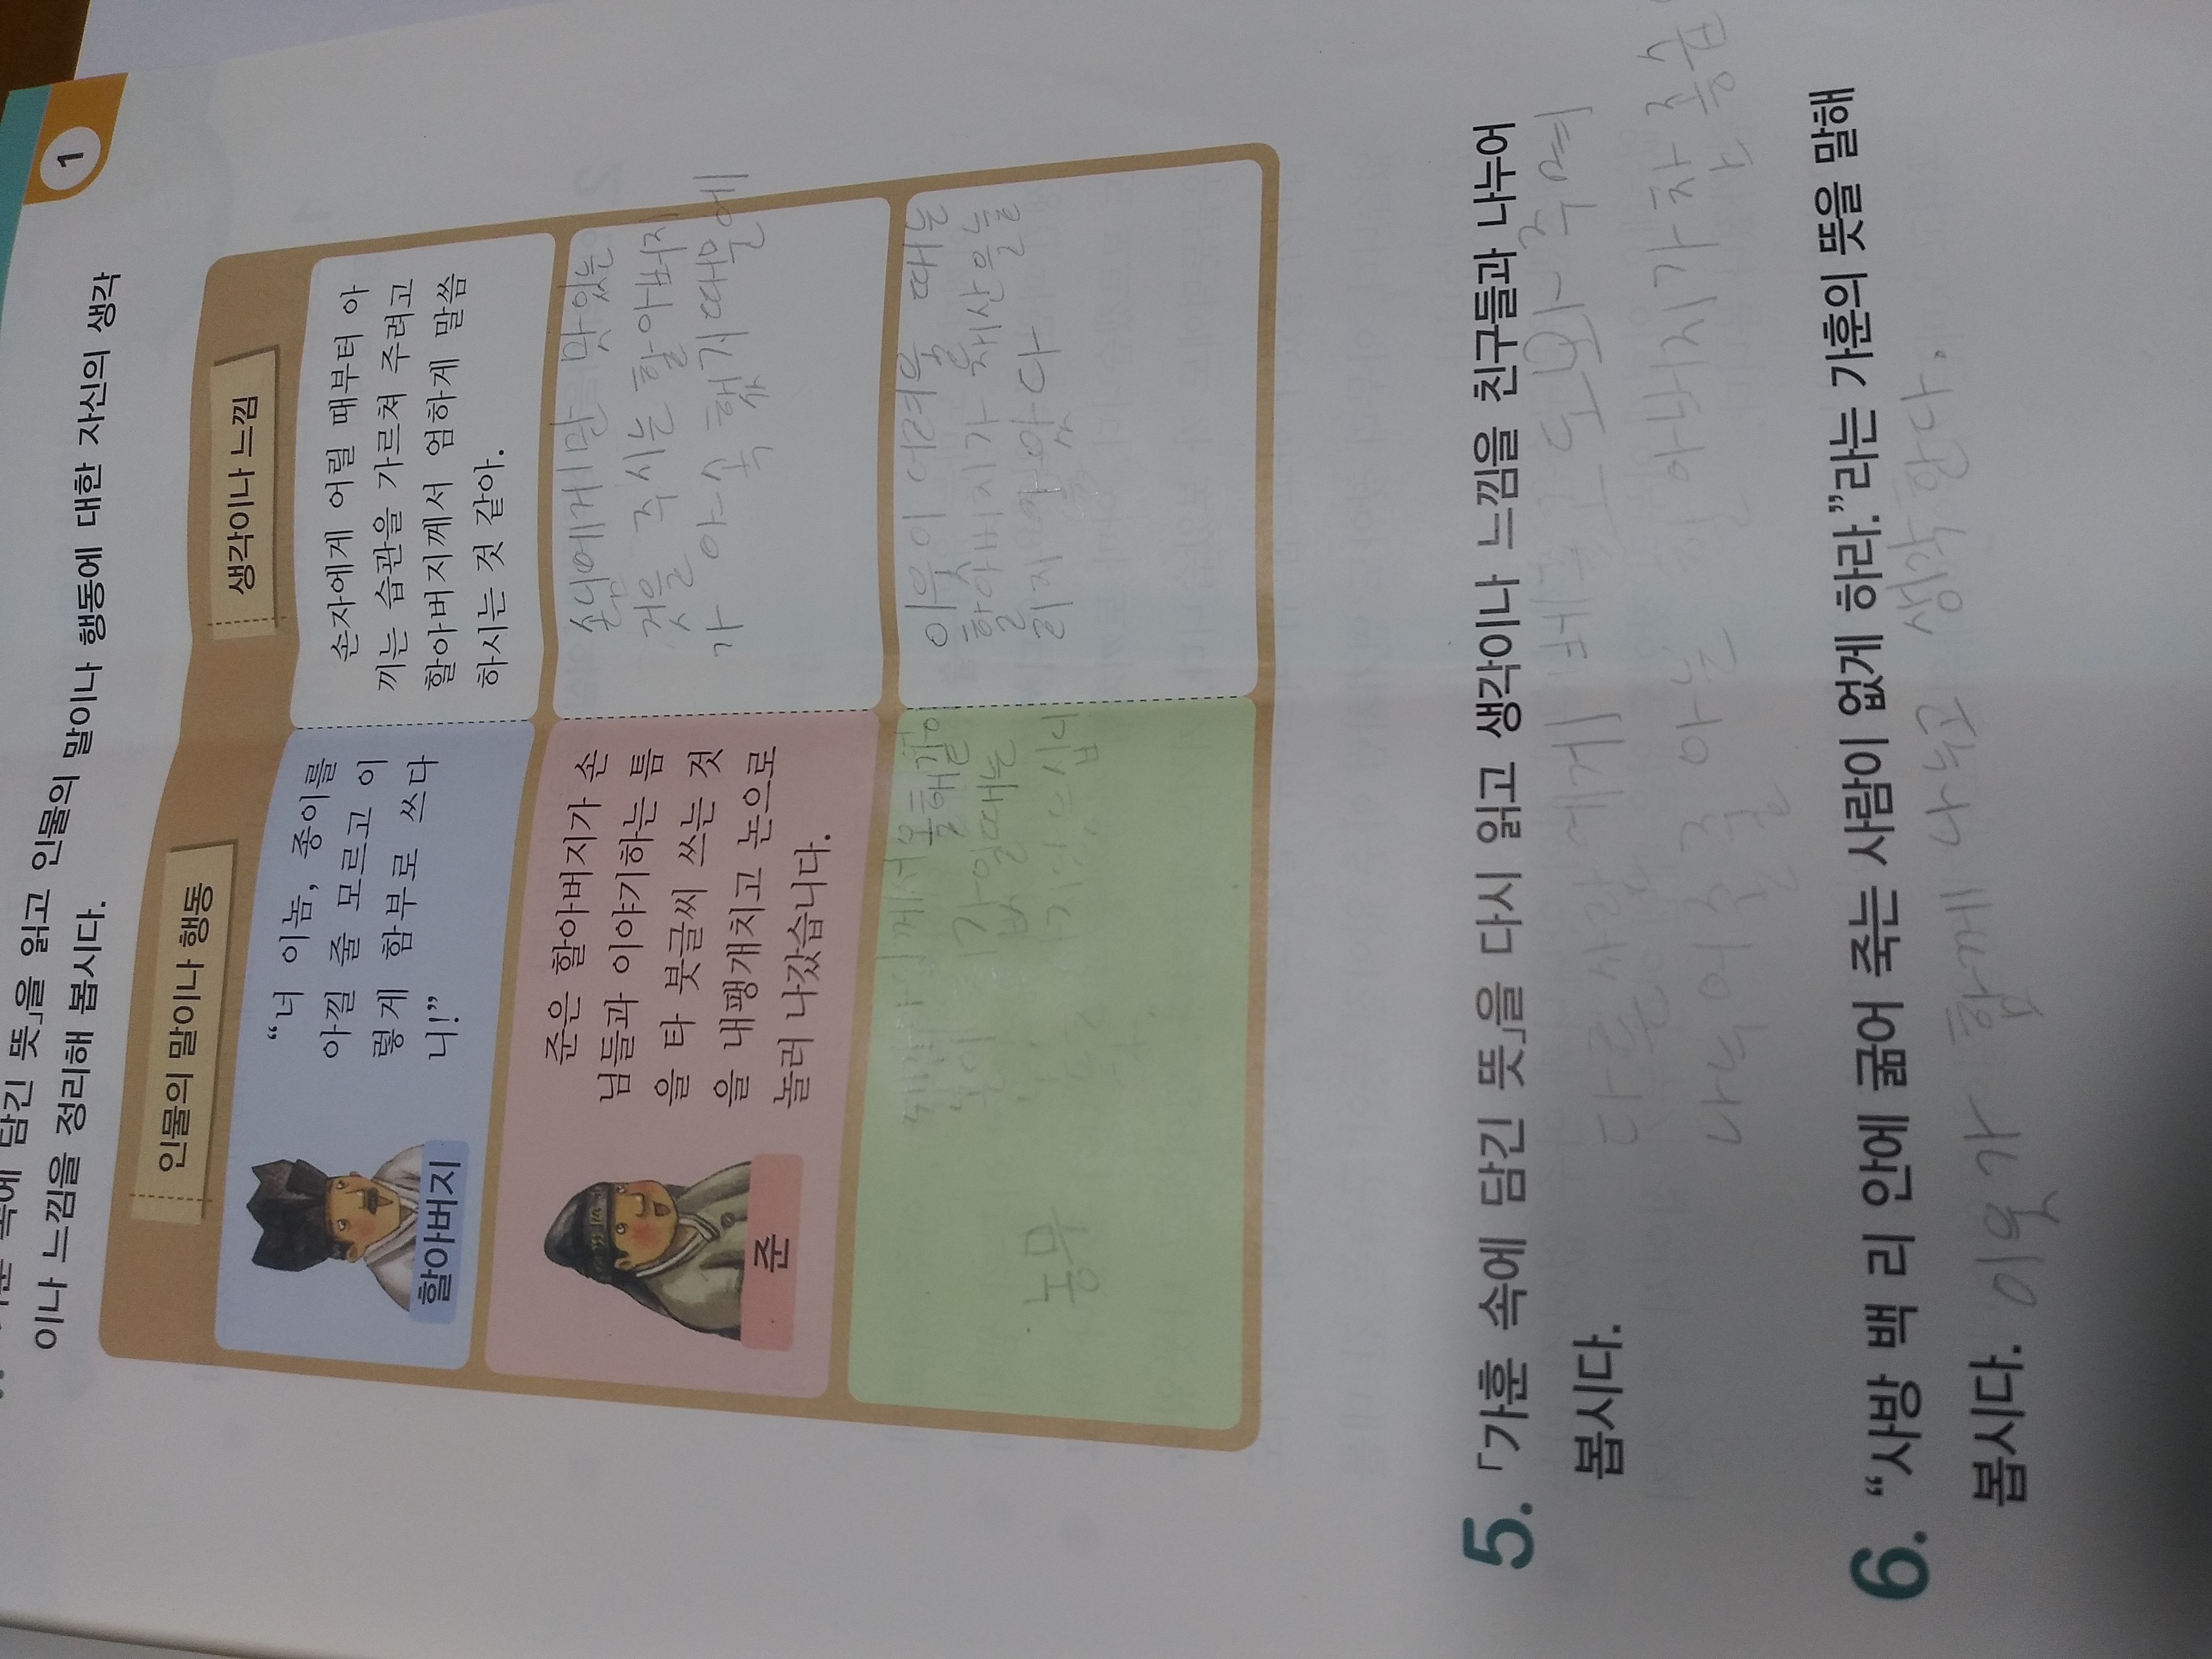 1
담긴 뜻」을 읽고 인물의 말이나 행동에 대한 자신의 생각
이나 느낌을 정리해 봅시다.
인물의 말이나 행동
생각이나 느낌
할아버지
“너 이놈, 종이를
아낄 줄 모르고 이
렇게 함부로 쓰다
니!”
손자에게 어릴 때부터 아
끼는 습관을 가르쳐 주려고
할아버지께서 엄하게 말씀
하시는 것 같아.
준
준은 할아버지가 손
님들과 이야기하는 틈
을 타 붓글씨 쓰는 것
을 내팽개치고 논으로
놀러 나갔습니다.
손님에게만 맛있는
것을 주시는 할아버지
가 야속 했기 때문에
농무
께서 올해 같이
값일 때는
이웃이 어려울 때는
할아버지가 재산을 늘
리지 않았다
5. 「가훈 속에 담긴 뜻」을 다시 읽고 생각이나 느낌을 친구들과 나누어
봅시다.
다른 사람에게 베풀고 도와주며
나누어줄 줄 아는 할아버지가 참
6. “사방 백 리 안에 굶어 죽는 사람이 없게 하라.”라는 가훈의 뜻을 말해
봅시다. 이웃가 함께 나누고 생각한다.